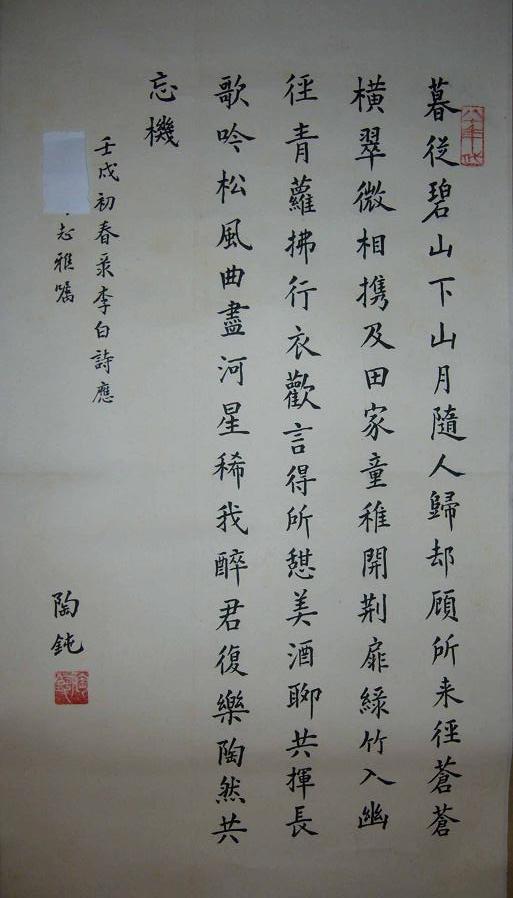 暮從碧山下山月隨人歸却顧所来徑蒼蒼
橫翠微相携及田家童稚開荆扉綠竹入幽
徑青蘿拂行衣歡言得所憇美酒聊共揮長
歌吟松風曲盡河星稀我醉君復樂陶然共
忘機
壬戌初春录李白詩應
志雅嘱
陶鈍